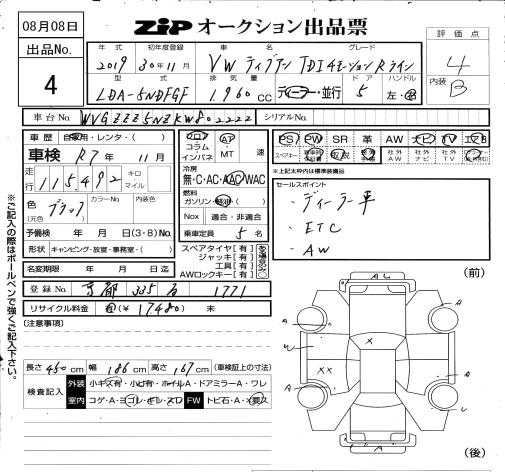 08月08日
ZIP オークション出品票
出品No.
4
評価点
4
内装
B
年式 初年度登録 車名 グレード
2019 30年11月 VW ティグアン TDI 4モーション Rライン
型式 排気量 ドア ハンドル
LDA-5NDFGF 1,960 cc ディーラー・並行 5 左・右
車台No. WVGZZZ5NZKW802222 シリアルNo.
車歴 自家用・レンタ・( )
車検 R7年 11月
走行 115,492 キロ マイル
色 (元色) ブラック カラーNo. 内装色
予備検 年 月 日(3・8)No.
形状 キャンピング・放宣・事務室・( )
名変期限 年 月 日迄
登録No. 京都 335 な 1771
リサイクル料金 有(¥ 17480) 未
フロア コラム インパネ
AT ・ MT 速
冷房
無・C・AC・AAC・WAC
燃料
ガソリン・軽油・( )
Nox 適合・非適合
乗車定員 5 名
スペアタイヤ[有]
ジャッキ[有]
工具[有]
AWロックキー[有]
有る場合のみ○
PS PW SR 革 AW ナビ TV エアB
スペアキー 取説 社外AW 社外ナビ 社外TV
※上記枠内は標準装備品
セールスポイント
・ディーラー車
・ETC
・AW
[注意事項]
長さ 450 cm 幅 186 cm 高さ 167 cm (車検証上の寸法)
検査記入 外装 小キズ有・小凹有・ホイルA・ドアミラーA・ワレ
室内 コゲ・A・ヨゴレ・キレ・スレ FW トビ石・A・X要ス
※ご記入の際はボールペンで強くご記入下さい。
(前)
A
A
A
A
U
W
X
XX
A
A
U
(後)